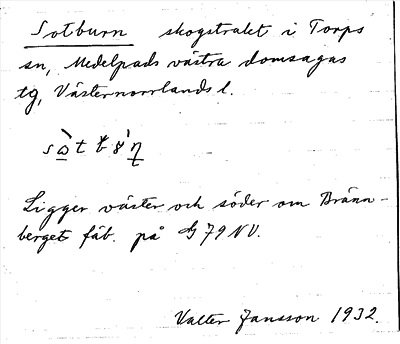 Sotburn skogstrakt i Torps
sn, Medelpads västra domsagas
tg, Västernorrlands l.
Ligger väster och söder om Bränn-
berget fäb. på G 79 NV.
Valter Jansson 1932.